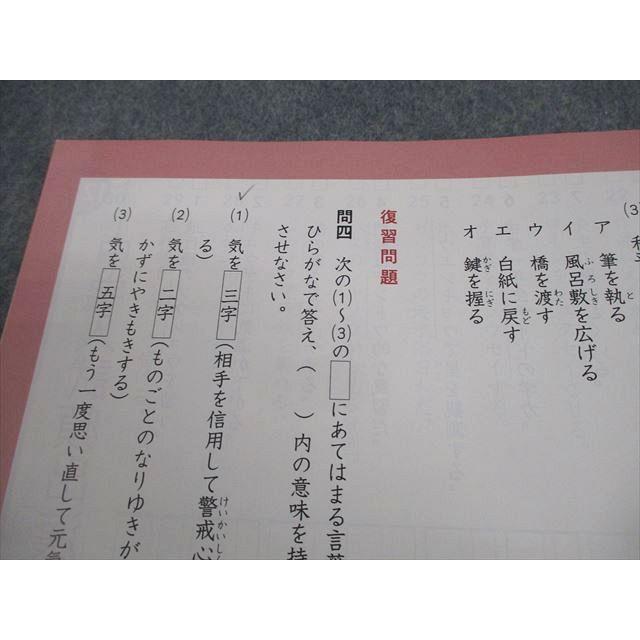 (3)
ア 筆を執る
イ 風呂敷を広げる
ウ 橋を渡す
エ 白紙に戻す
オ 鍵を握る
復習問題
問四 次の(1)～(3)の□にあてはまる言葉
ひらがなで答え、( )内の意味を持
させなさい。
(1) 気を 三字 (相手を信用して警戒心
る)
(2) 気を 二字 (ものごとのなりゆきが
かずにやきもきする)
(3) 気を 五字 (もう一度思い直して元気